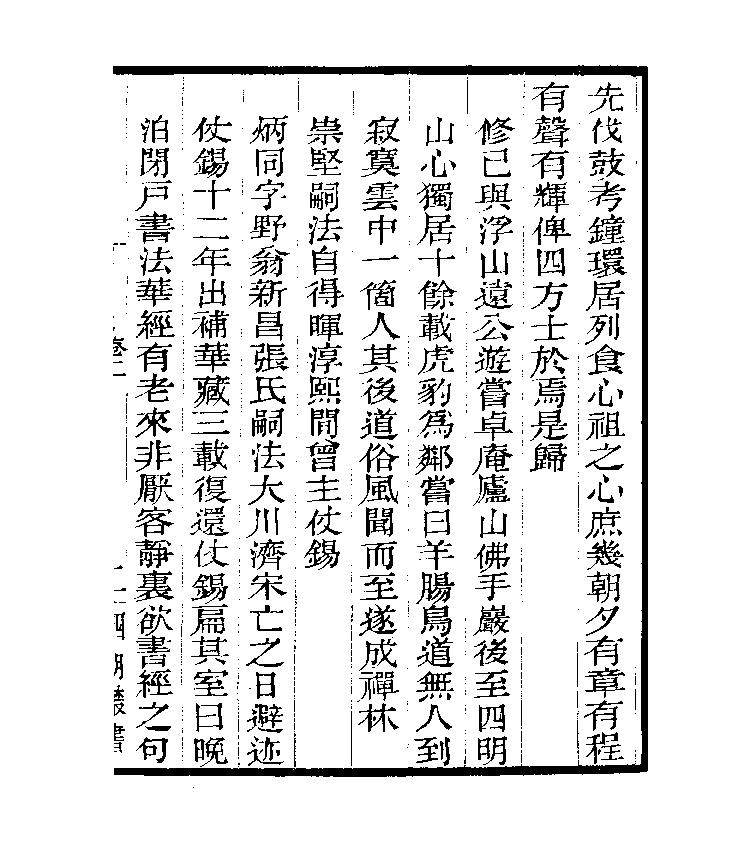 先伐鼓考鐘環居列食心祖之心庶幾朝夕有章有程
有聲有輝俾四方士於焉是歸
修已與浮山遠公遊嘗卓庵廬山佛手巖後至四明
山心獨居十餘載虎豹為鄰嘗曰羊腸鳥道無人到
寂寞雲中一箇人其後道俗風聞而至遂成禪林
崇堅嗣法自得暉淳熙間曾主仗錫
炳同字野翁新昌張氏嗣法大川濟宋亡之日避迹
仗錫十二年出補華藏三載復還仗錫扁其室曰晚
泊閉戸書法華經有老來非厭客靜裏欲書經之句
四明叢書